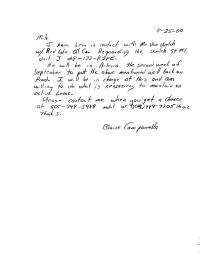 8-25-00
Mike
I have been in contact with Mr Van Welch
w/ Bird Lake Oil Co. Regarding the Welch St #1
Unit J
He will be in Artesia the second week of
September to put the above mentioned well back on
Prod. I will be in charge of this and am
willing to do what is necessary to maintain an
active Lease.
Please contact me when you get a chance
at 505-748-5488 mobl or
Thanks.
Blaise Campanella